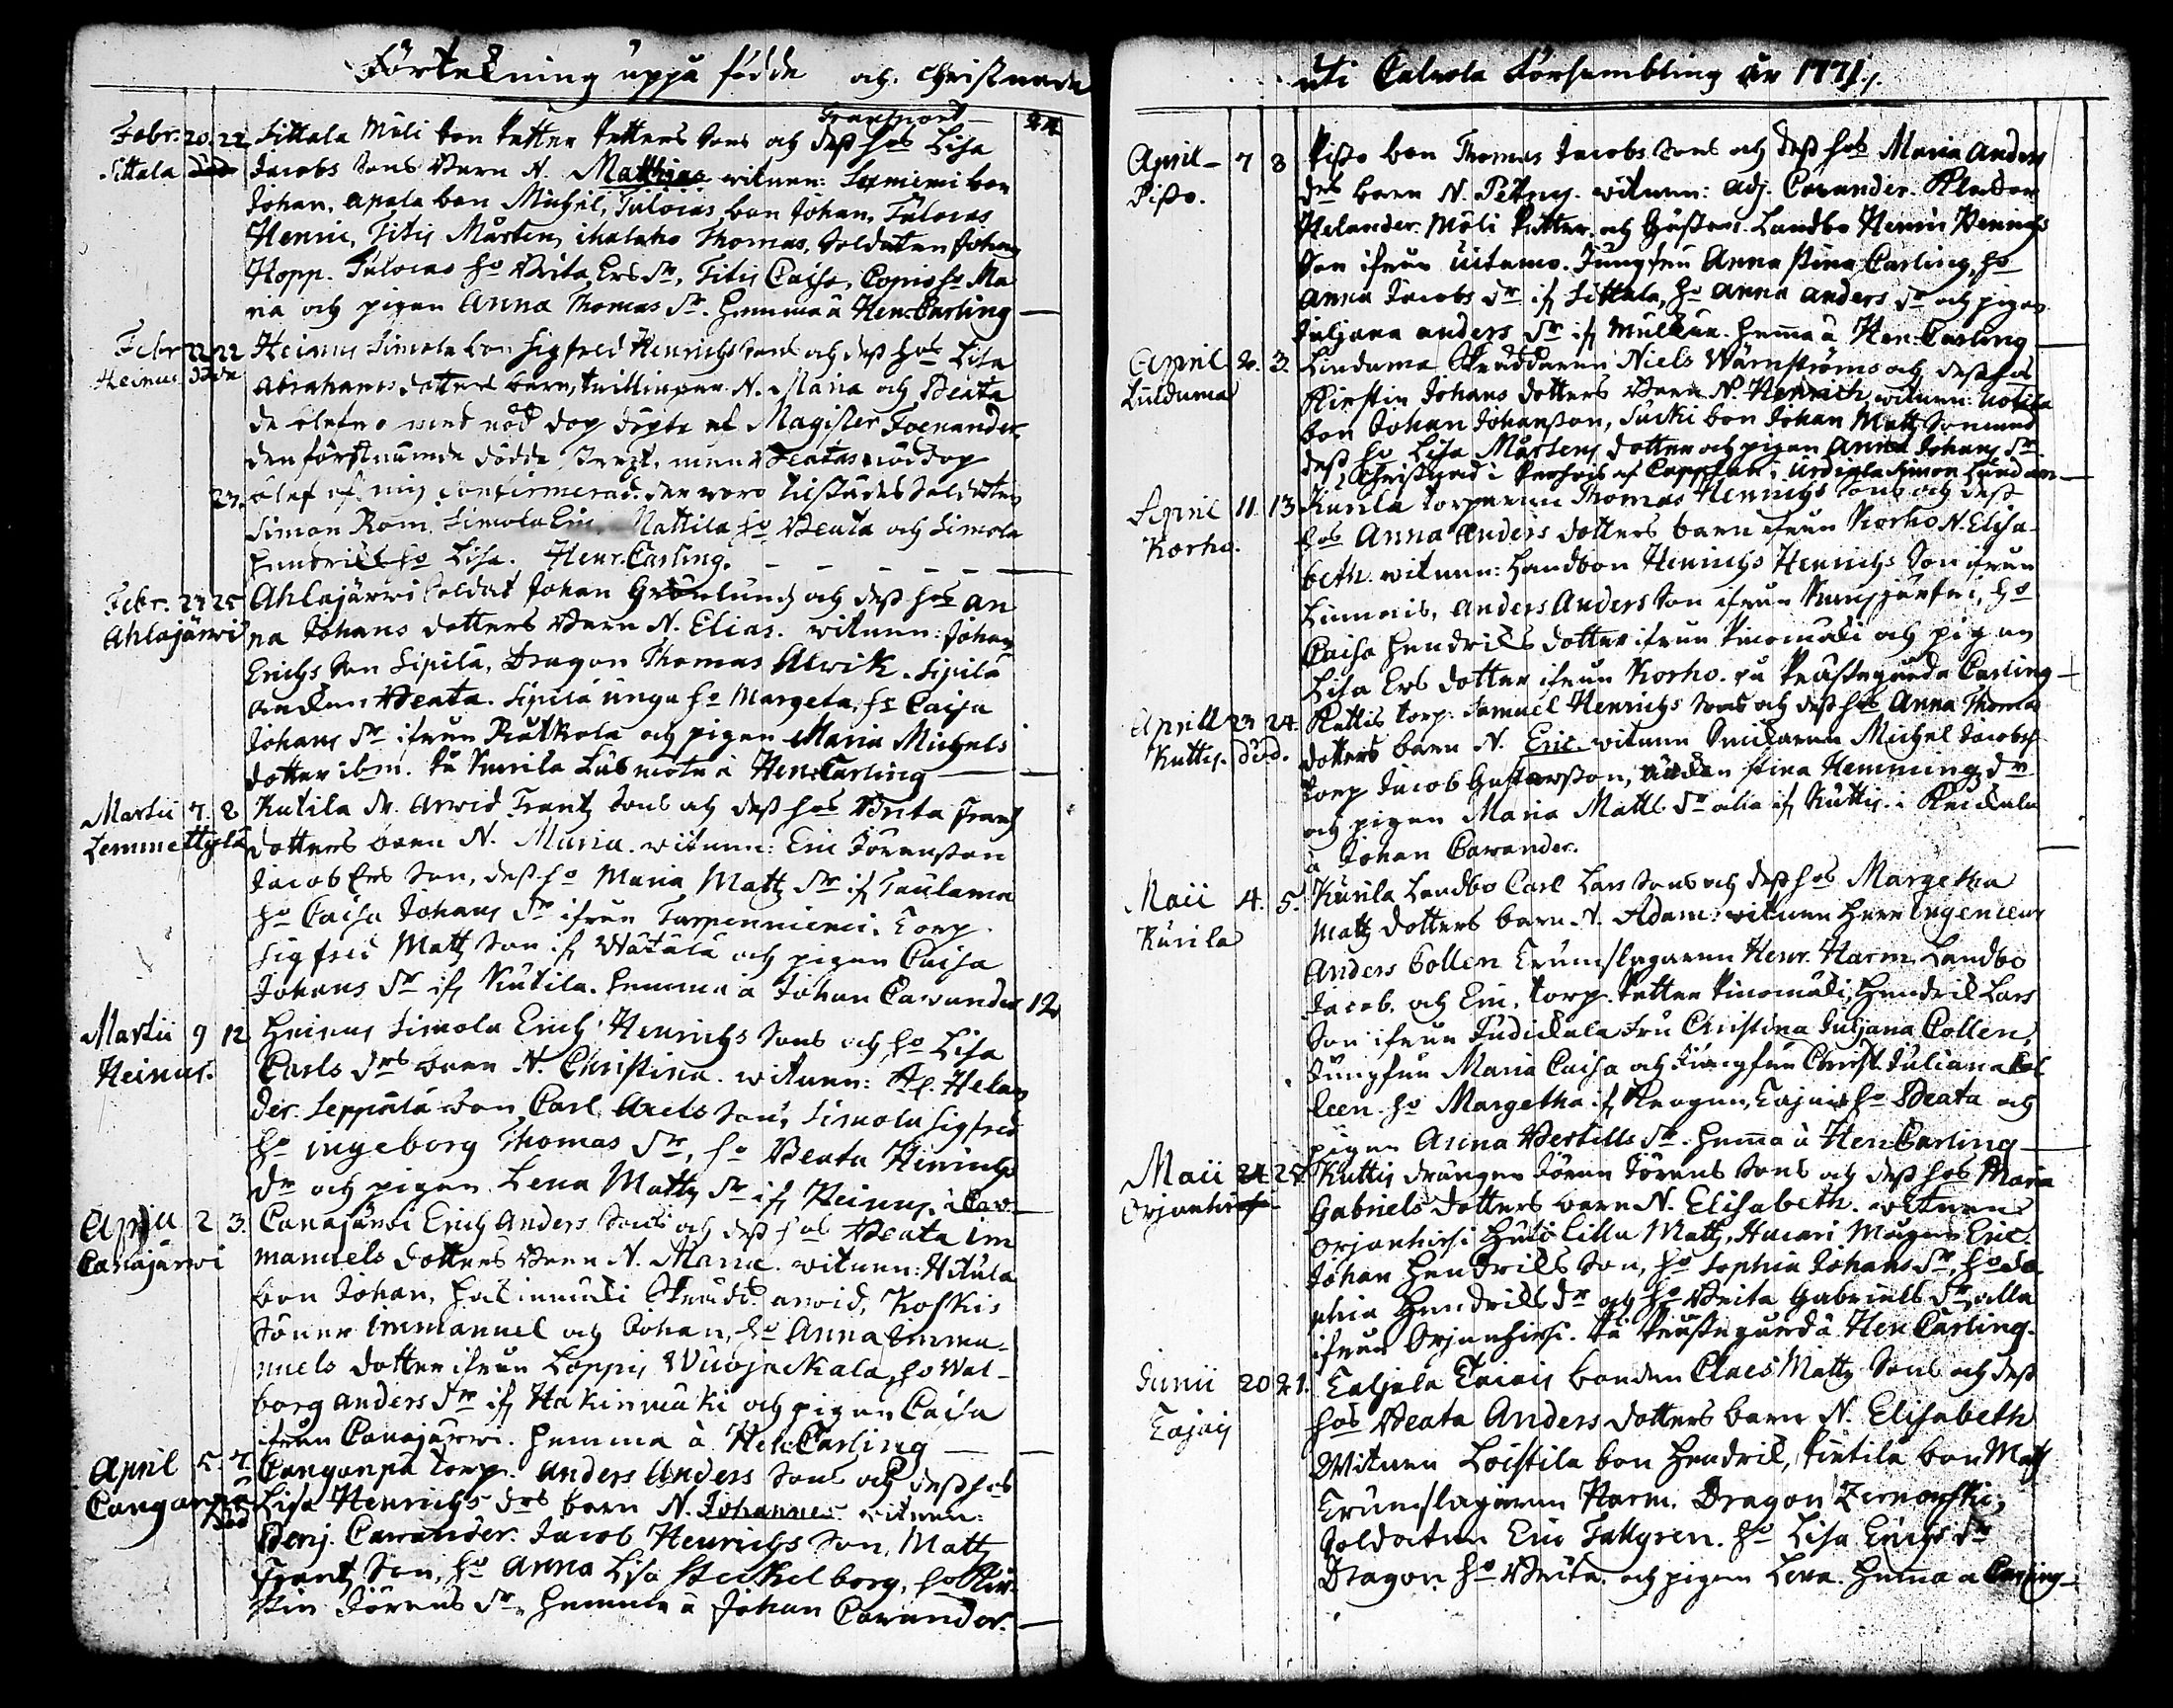 Förtekning uppå födde och Christnade
Transport 24
Febr. 20. 22. Sittala Möli bon Petter Petters Sons och dess hos Lisa
Sittala död Jacobs Sons Barn N. Mathias witnen: Lammimi bon
Johan, Apala bon Michel, Tulocas bon Johan, Tulocas
Henric, Titis Mårten, ikalaho Thomas, Soldaten Johan
Hopp. Tulocas ho Brita Ers dr, Titis Caisa, Copis ho Ma
ria och pigan Anna Thomas dr. hemma à Hen: Carling
Febr 22 22 Heinus Simola bon Sigfred Henrichs Sons och dess hos Lisa
Heinus döda Abrahams dotters barn, twillingar N. Maria och Beata
de blefwo med nöd dop döpte af Magister Foenander
den förstnämde dödde strax, men Beatas nöddop
23. blef af mig confirmerad. der woro tilstädes Soldaten
Simon Rom. Simola Mattila ho Beata och Simola
hendrik ho Lisa. Henr. Carling.
Febr. 23 25 Ahlajärwi Soldat Johan Grönlunds och dess hos An
Ahlajärwi na Johans dotters Barn N. Elias. witnen: Johan
Erichs Son Sipilä, Dragon Thomas Alwik. Sipilä
änckan Beata. Sipilä unga ho Margeta, ho Caisa
Johans dr ifrån Rutkola och pigan Maria Michels
dotter ibm. På Kurila à Hen: Carling
Martii 7. 8 Kutila dr. Arwid Frantz Sons och dess hos Brita Frantz
Lemmettylä dotters barn N. Maria. witnen: Eric Jöransson
Jacob Ers Son, dess ho Maria Matts dr if Taulama
ho Caisa Johans dr ifrån Torp.
Sigfred Matts Son if Wätälä och pigan Caisa
Johans dr if Kutila. hemma à Johan Cawander 12
Martii 9 12 Heinus Simola Erich Henrichs Sons och ho Lisa
Heinus. Carls drs barn N. Christina. witnen: Kl. Helan
der. Seppälä bon Carl Axels Son, Simola Sigfred
ho ingeborg Thomas dr, ho Beata Hinrichs
dr och pigan Lena Matts dr if Heinus. à Caw.
April 2 3. Canajärwi Erich Anders Sons och dess hos Beata Im
Canajärwi manuels dotters Barn N. Maria. witnen: Hitula
bon Johan, Hakinmäki Skrädd. Arvid, Koskis
Söner Immanuel och Johan, ho Anna Imma-
nuels dotter ifrån Loppis Wuojackala, ho Wal-
borg Anders dr if Hakinmäki och pigan Caisa
ifrån Canajärwi. hemma à Hen: Carling
April 5. 7. Canganpä torp. Anders Anders Sons och dess hos
Canganpä Lisa Henrichs drs barn N. Johannes. witnen:
död Benj. Cawander. Jacob Henrichs Son, Matts
Frantz Son, ho Anna Lisa Stickelborg, ho Kir
stin Jörans dr. hemma à Johan Cawander.
uti Calvola Försambling År 1771.
April 7 8 Pisto bon Thomas Jacobs Sons och dess hos Maria Anders
Pisto. drs barn N. Petrus. witnen: Adj. Cawander. Klockar
Helander. Möli Petter och Gustav. Landbo Henric Henrichs
Son ifrån Uitamo. Jungfru Anna Stina Carling, ho
Anna Jacobs dr if Sittala, ho Anna Anders dr och pigan
Juljana Anders dr if Mullua. hema à Hen: Carling
April 2. 3. Linduma Skräddaren Niels Wärnströms och dess hos
Linduma Kirstin Johans dotters Barn N. Henrich witnen: Uotila
bon Johan Johansson, Sucki bon Johan Matts Son med
dess ho Lisa Mårtens dotter och pigan Anna Johans dr
Christnad i af Cappelan. Urdiala Simon Lundan
April 11 13 Kurila torparen Thomas Henrichs Sons och dess
Korho. hos Anna Anders dotters barn ifrån Korho N. Elisa-
beth. witnen: Landbon Henrichs Henrichs Son ifrån
Linnais, Anders Anders Son ifrån, ho
Caisa Hendrichs dotter ifrån Pinomäki och pigan
Lisa Ers dotter ifrån Korho. på Prästegårdn Carling
Aprill 23 24. Kuttis torp. Samuel Henrichs Sons och dess hos Anna Thomas
Kuttis. död. dotters barn N. Eric. witnen Snickaren Michel Jacobss
torp Jacob Gustavsson, änckan Stina Hemmings dr
och pigan Maria Matts dr alla if Kuttis. i
à Johan Cawander.
Maii 4. 5. Kurila Landbo Carl Lars Sons och dess hos Margetha
Kurila Matts dotters barn N. Adam. witnen Herr Ingenieur
Anders Collen Trumslagaren Henr. Harm, Landbo
Jacob och Eric, torp. Petter Pinomäki, Hendrick Lars
Son ifrån Fru Christina Juljana Collen,
Jungfru Maria Caisa och Jungfru Christ. Juliana Col
leen. ho Margetha if, Tajais ho Beata och
pigan Anna Bertills dr. hema à Hen: Carling
Maii 24 25. Kuttis drängen Jören Jörens Sons och dess hos Maria
Orjanhirsi Gabriels dotters barn N. Elisabeth. witnen
Orjanhirsi Matts, Eric.
Johan Hendricks Son, ho Sophia Johans dr, ho So
phia Hendricks dr och ho Brita Gabriels dr, alla
ifrån Orjanhirsi. På Prästegård à Hen: Carling.
Junii 20 21. Taljala Tajais bonden Claes Matts Sons och dess
Tajais hos Beata Anders dotters barn N. Elisabeth
Witnen Loistila bon Hendrick, Pietila bon Matts
Trumslagaren Harm. Dragon Zernowski,
Soldaten Eric Tallgren. ho Lisa Erichs dr
Dragon. ho Brita. och pigan Lena. hema à Carling